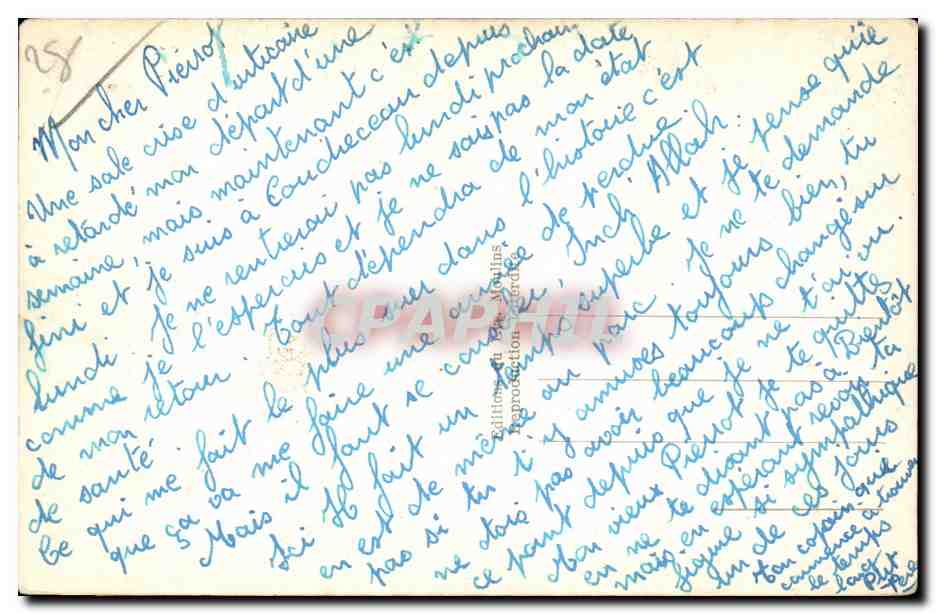 28
Mon cher Pierrot
Une sale crise d'urticaire
à retardé mon départ d'une
semaine, mais maintenant c'est
fini et je suis à Coudreceau depuis
lundi. Je ne rentrerai pas lundi prochain
comme je l'espérais et je ne sais pas la date
de mon retour. Tout dépendra de mon état
de santé.
Ce qui me fait le plus suer dans l'histoire c'est
que ça va me faire une année de perdue.
Mais il faut se consoler, Inch Allah
Ici il fait un temps superbe et je pense qu'il
en est de même au parc. Je ne te demande
pas si tu t'y amuses toujours bien, tu
ne dois pas avoir beaucoup changé sur
ce point depuis que je ne t'ai vu
Mon vieux Pierrot je te quitte
en ne te disant pas à Bientôt
mais en espérant revoir ta
figure si sympathique
un de ces jours
Ton copain que
commence à trouver
le temps
long
P'tit
Père
Editions du Lys Moulins
Reproduction interdite
CPAPHIL